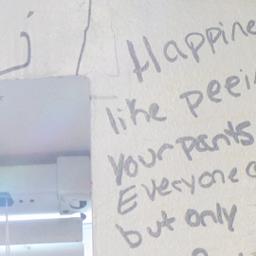 Happine
like peei
your pants
Everyone c
but only